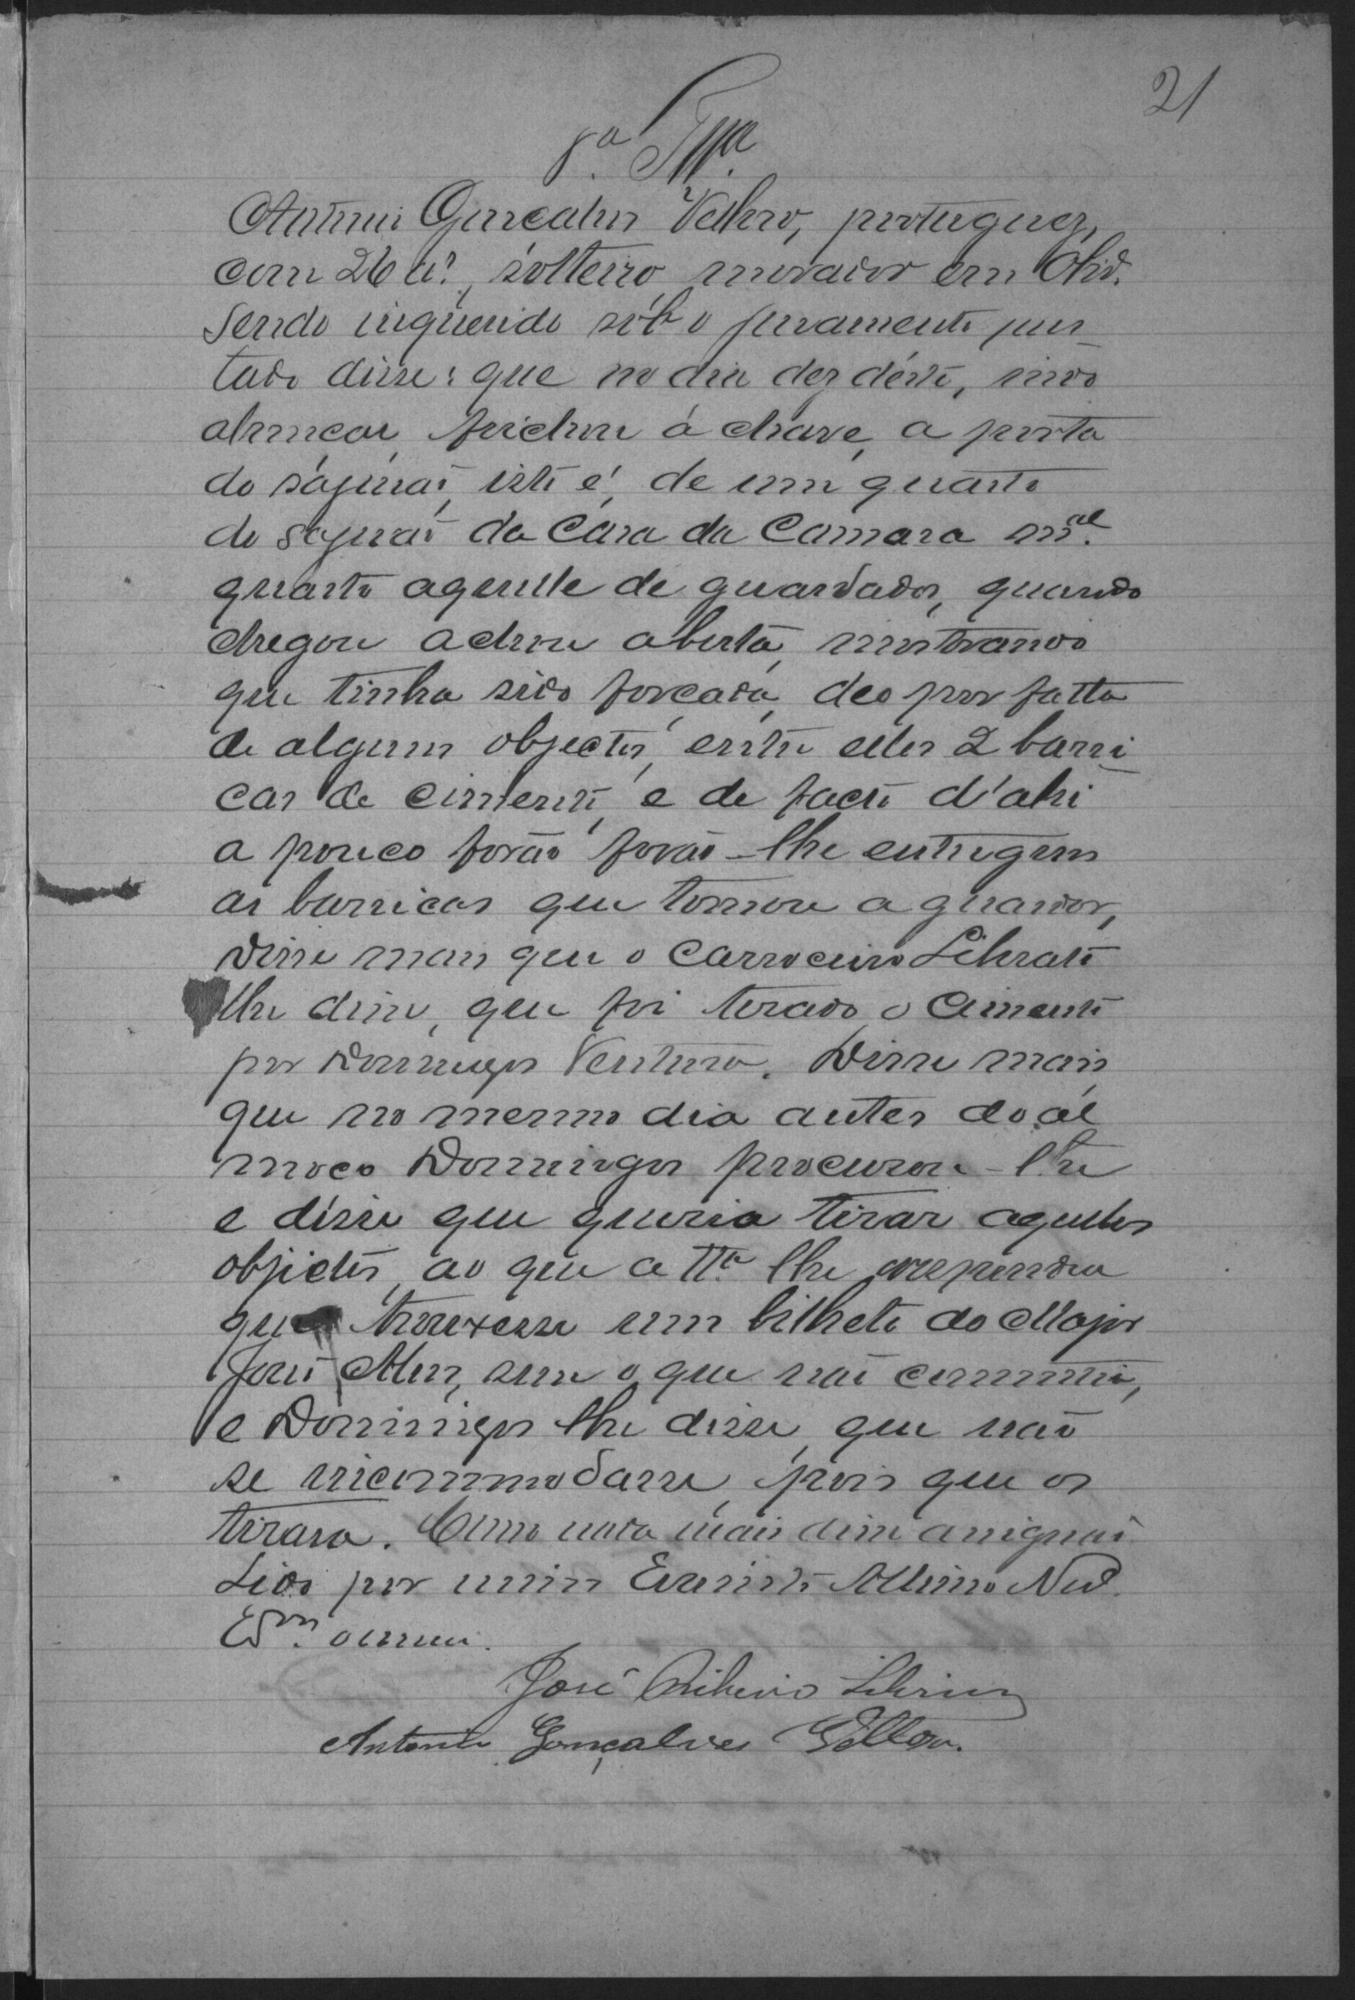 21
8ª Tª
Antonio Gonçalves Velho, portuguez,
com 26 aˢ, solteiro, morador em Olivª.
Sendo inquerido sób o juramento pres
tado disse: que no dia dez déste, indo
almoçar, feichou á chave, a porta
do saguão, isto é, de um quarto
do saguão da Casa da Camara mᵃˡ.
quarto aquelle de guardados, quando
chegou achou aberta, mostrando
que tinha sido forçada, deo por falta
de alguns objectos, entre elles 2 barri
cas de cimento, e de facto d'ahi
a pouco forão forão-lhe entregues
as barricas que tornou a guardar,
Disse mais que o carroceiro Liberato
lhe disse, que foi tirado o cimento
por Domingos Ventura. Disse mais
que no mesmo dia antes do al
moço Domingos procurou-lhe
e disse que queria tirar aquelles
objectos, ao que a Tª lhe respondeu
que trouxesse um bilhete do Major
José Alves, sem o que não consentia,
e Domingos lhe disse, que não
se incommodasse, pois que os
tirara. Como nada mais disse assignou
Lido por mim Evaristo Albino
Esᵐ. o escrevi.
José Ribeiro
Antonio Gonçalves